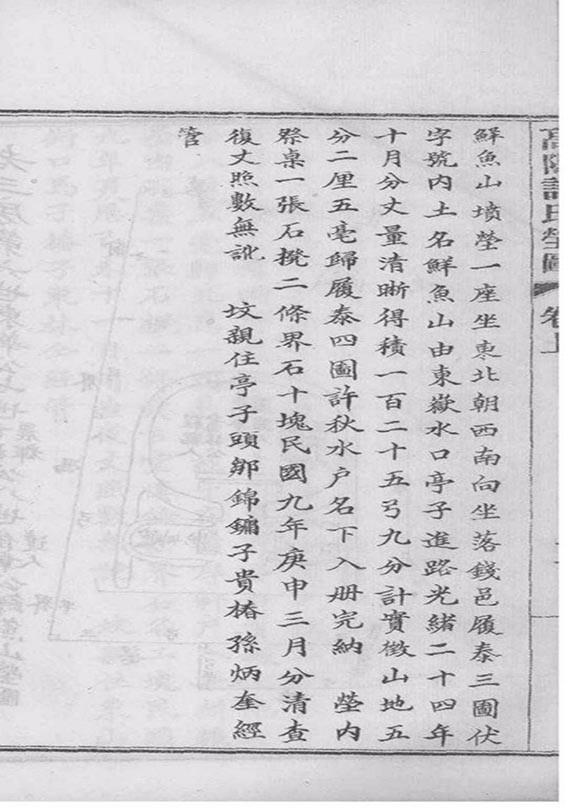 高陽許氏塋圖 卷上
鮮魚山墳塋一座坐東北朝西南向坐落錢邑履泰三圖伏
字號內土名鮮魚山由東嶽水口亭子進路光緒二十四年
十月分丈量清晰得積一百二十五弓九分計實徵山地五
分二厘五毫歸履泰四圖許秋水户名下入册完納　塋内
祭桌一張石櫈二條界石十塊民國九年庚申三月分清查
復丈照數無訛　坟親住亭子頭鄒錦鏞子貴椿孫炳奎經
管